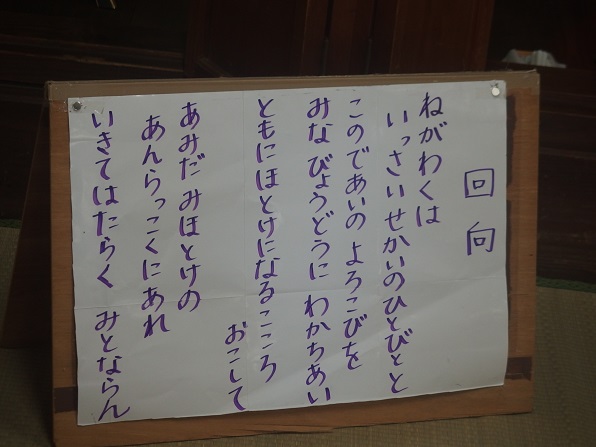 回向
ねがわくは
いっさいせかいのひとびとと
このであいの よろこびを
みな びょうどうに わかちあい
ともにほとけになるこころ
おこして
あみだ みほとけの
あんらっこくにあれ
いきてはたらく みとならん